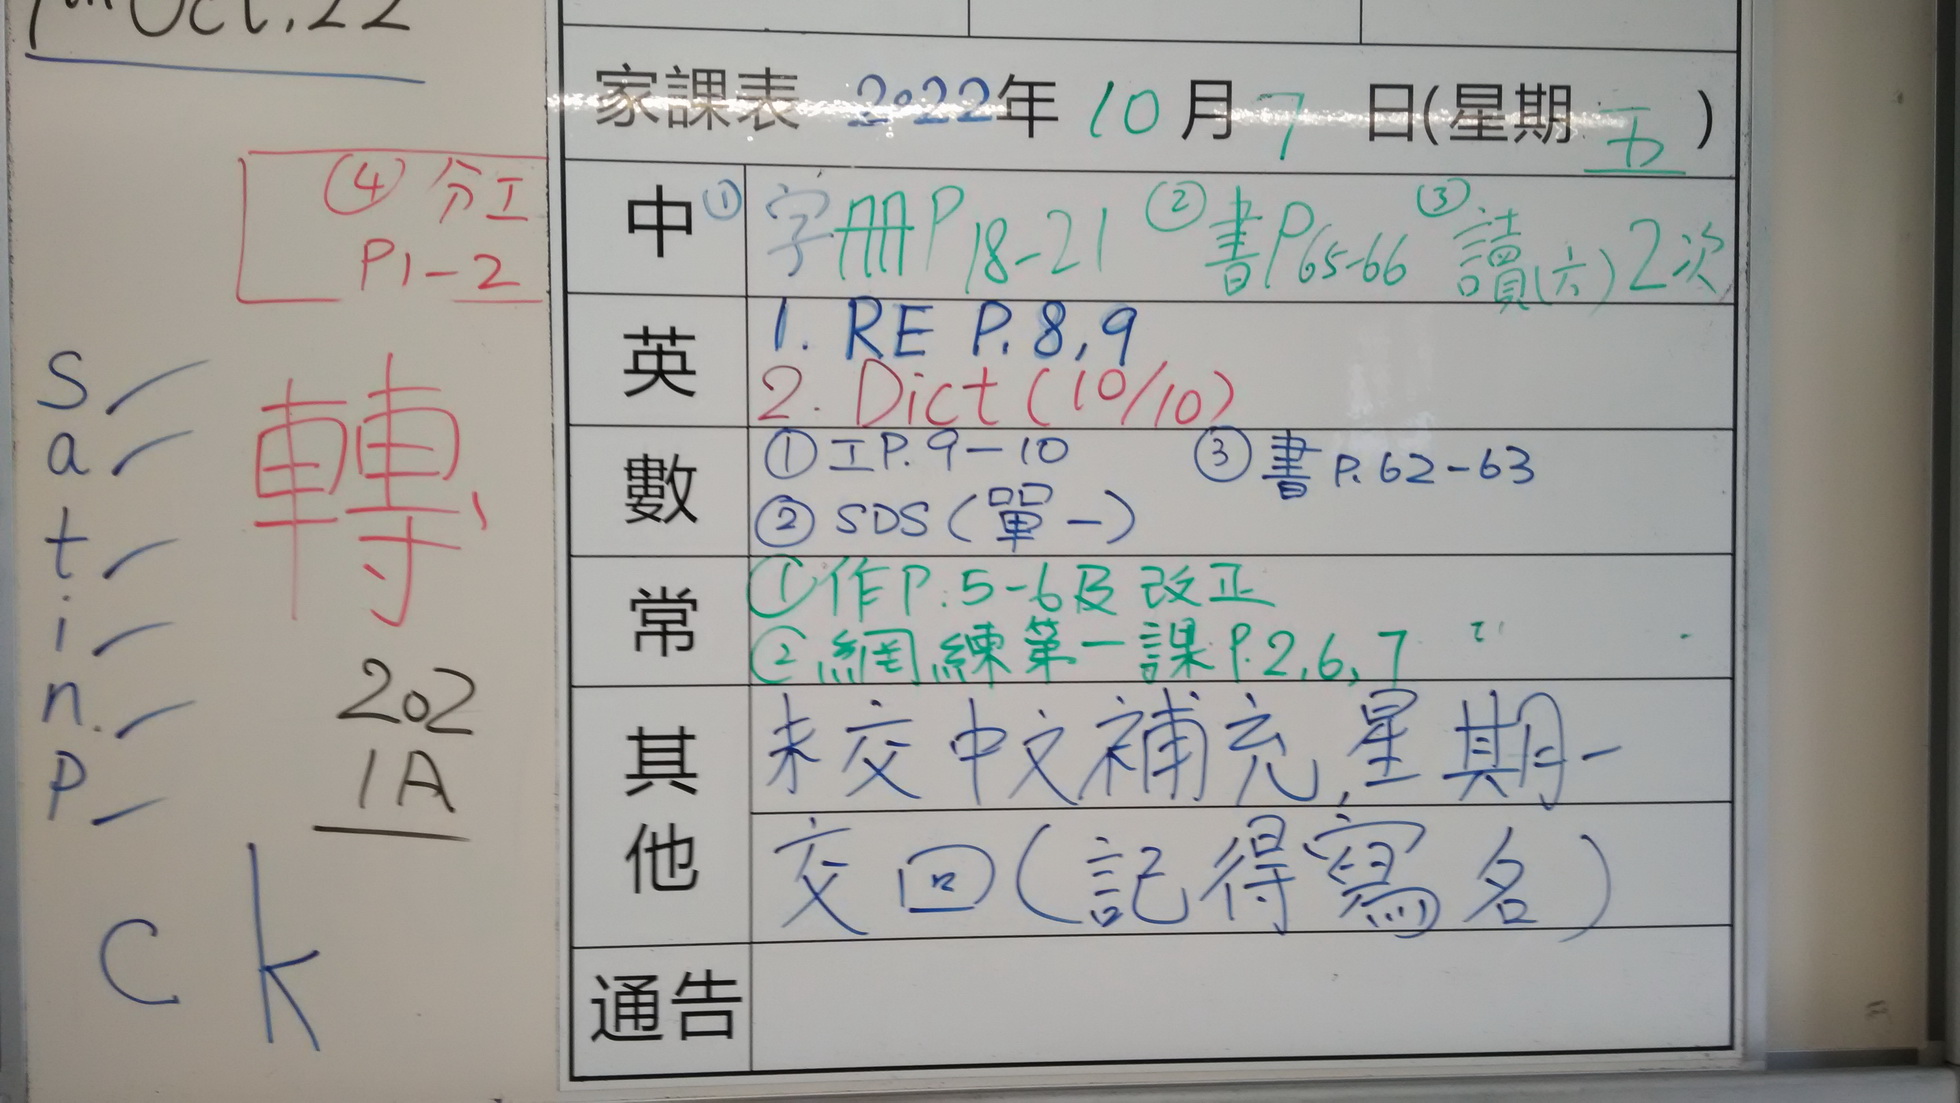 7th Oct. 22
家課表 2022年 10 月 7 日(星期 五 )
④ 分工
P1-2
中 ① 字冊P18-21 ② 書P65-66 ③ 讀(六)2次
英 1. RE P.8,9
2. Dict (10/10)
數 ① 工P.9-10 ③ 書P.62-63
② SDS (單一)
常 ① 作P.5-6及改正
② 網練第一課P.2,6,7
其他 未交中文補充,星期一
交回(記得寫名)
通告
S
a
t
i
n.
P
轉
202
1A
c k